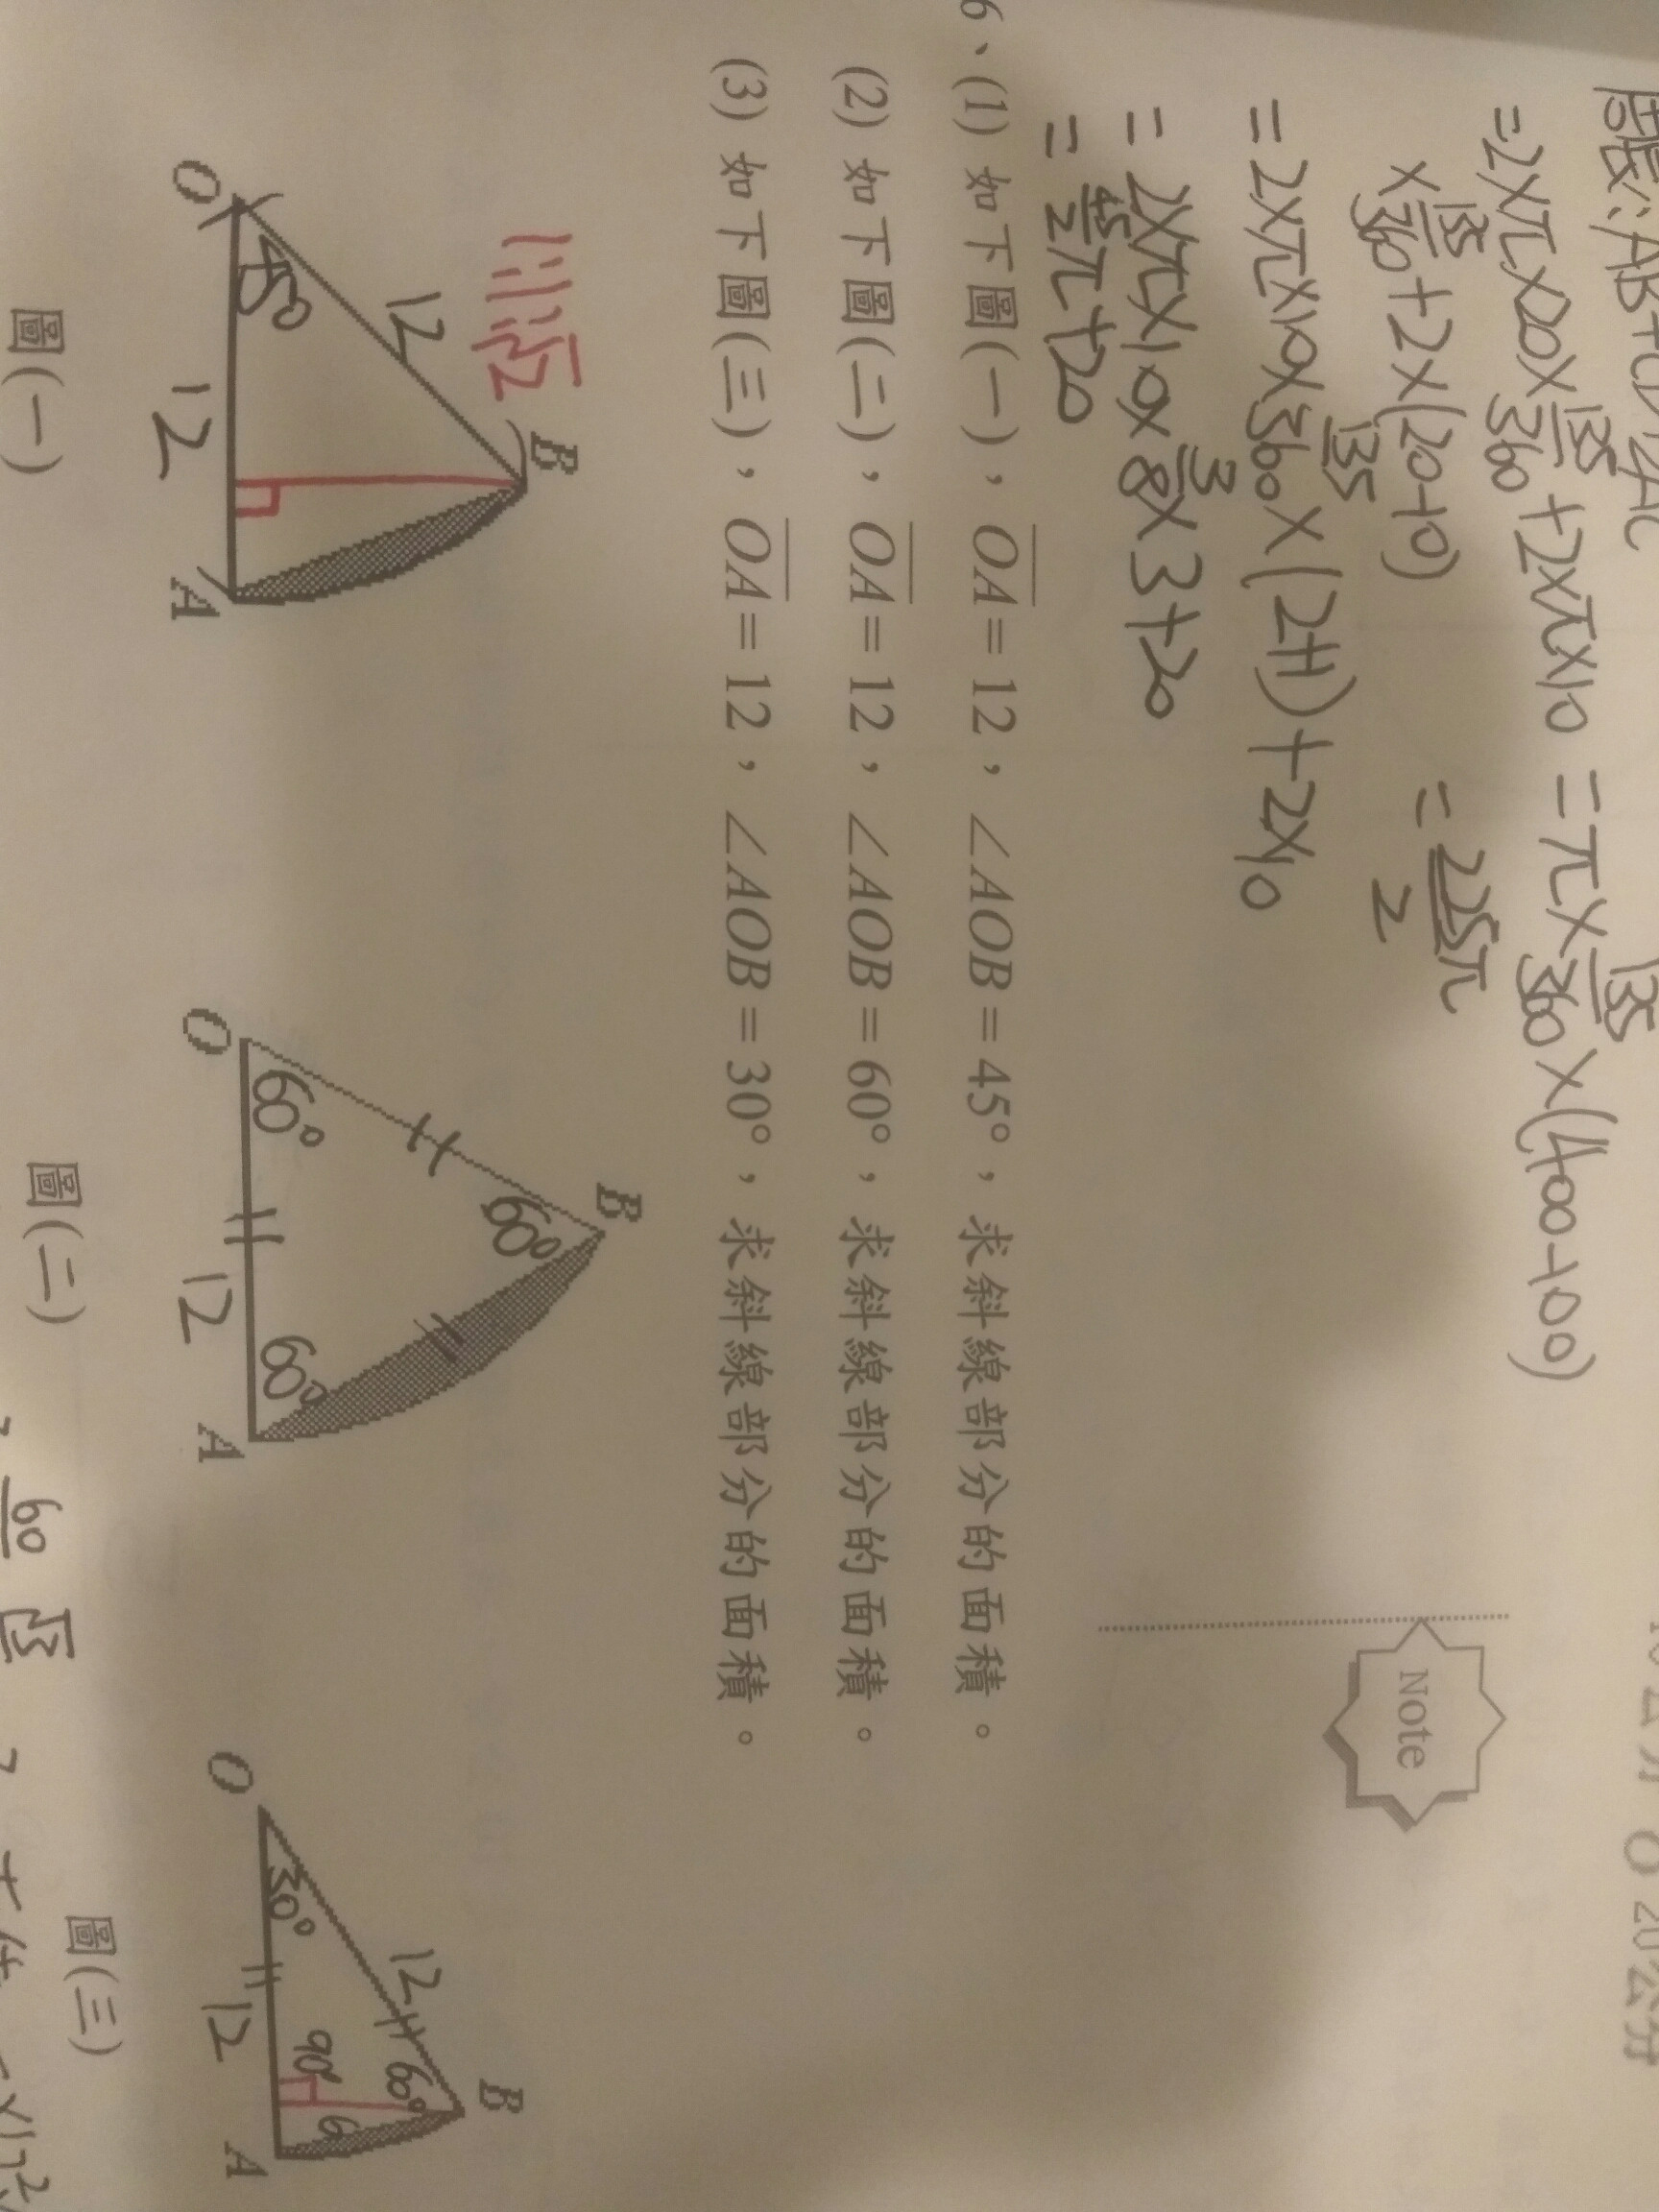 周長:AB+CD+2AC
=2×π×20×135/360+2×π×10 =π×135/360×(400-100)
×135/360+2×(20-10) =225π/2
=2×π×10×135/360×(2+1)+2×10
=2×π×10×3/8×3+20
=45/2π+20
Note
6、(1) 如下圖(一),OA=12,∠AOB=45°,求斜線部分的面積。
(2) 如下圖(二),OA=12,∠AOB=60°,求斜線部分的面積。
(3) 如下圖(三),OA=12,∠AOB=30°,求斜線部分的面積。
1:1:√2
B
12
45°
O
12
A
圖(一)
B
60°
60°
60°
O
12
A
圖(二)
B
12
60°
30°
90°
6
O
12
A
圖(三)
60
√3
20公分